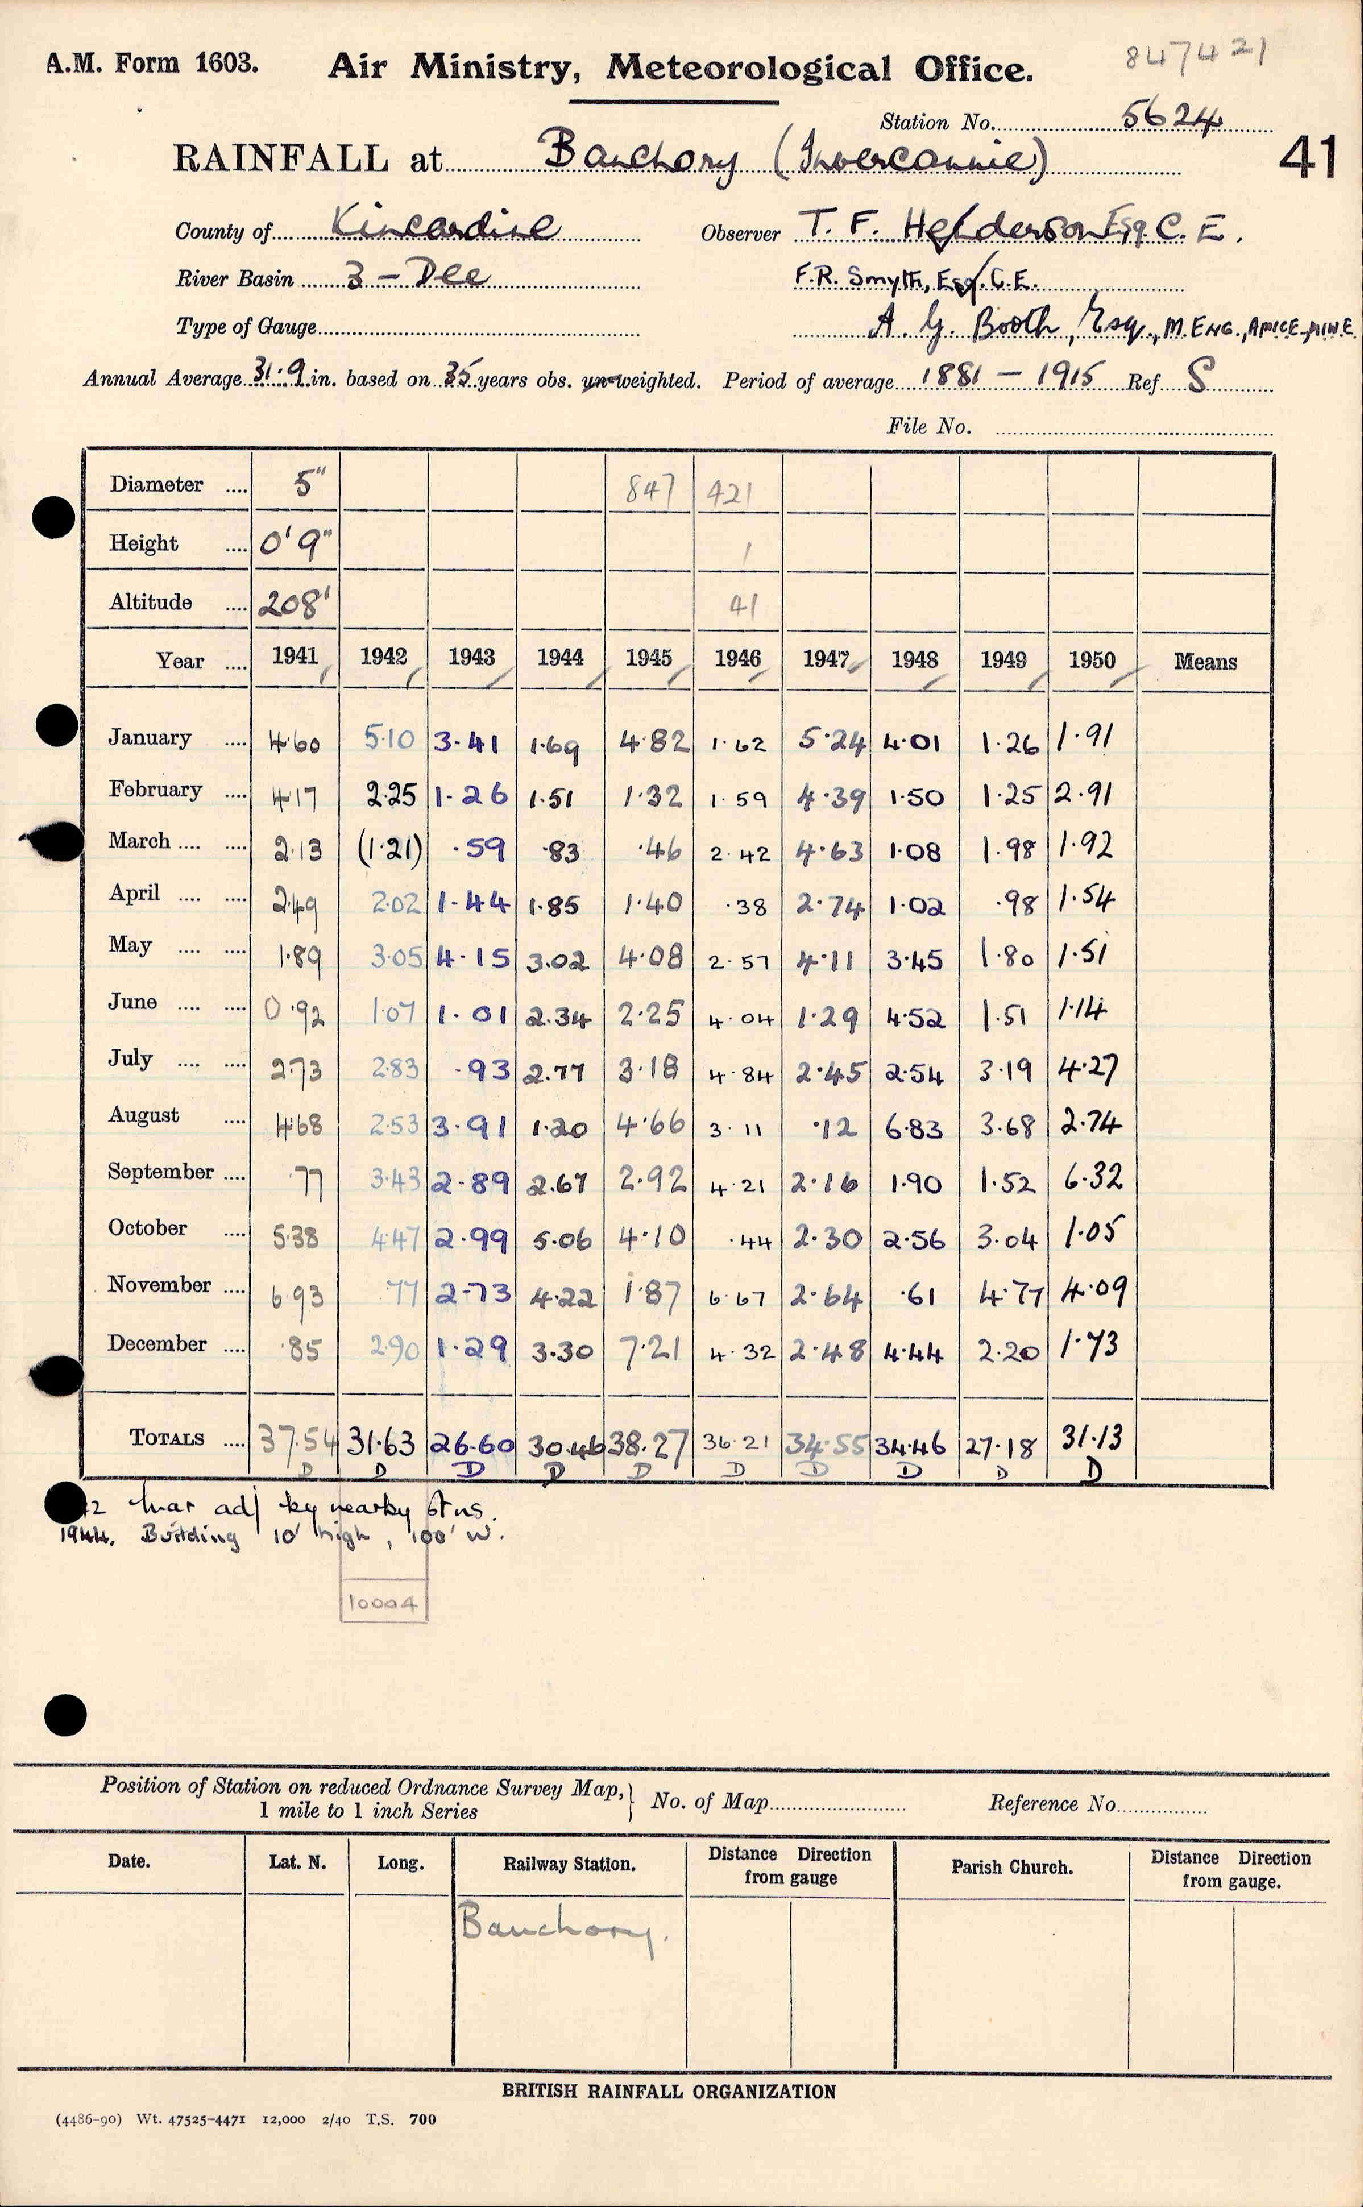 A.M. Form 1603. Air Ministry, Meteorological Office. 847421
Station No. 5624
41
RAINFALL at Banchory (Invercannie)
County of Kincardine Observer T. F. Henderson Esq. C. E.
River Basin 3 - Dee F.R. Smyth, Esq. C.E.
Type of Gauge A. G. Booth, Esq., M.ENG., AMICE.
Annual Average 31.9 in. based on 35 years obs. un-weighted. Period of average 1881 - 1915 Ref S
File No.
Diameter .... 5" 847 421
Height .... 0' 9" 1
Altitude .... 208' 41
Year .... 1941 1942 1943 1944 1945 1946 1947 1948 1949 1950 Means
January .... 4.60 5.10 3.41 1.69 4.82 1.62 5.24 4.01 1.26 1.91
February .... 4.17 2.25 1.26 1.51 1.32 1.59 4.39 1.50 1.25 2.91
March .... .... 2.13 (1.21) .59 .83 .46 2.42 4.63 1.08 1.98 1.92
April .... .... 2.49 2.02 1.44 1.85 1.40 .38 2.74 1.02 .98 1.54
May .... .... 1.89 3.05 4.15 3.02 4.08 2.57 4.11 3.45 1.80 1.51
June .... .... 0.92 1.07 1.01 2.34 2.25 4.04 1.29 4.52 1.51 1.14
July .... .... 2.73 2.83 .93 2.77 3.18 4.84 2.45 2.54 3.19 4.27
August .... 4.68 2.53 3.91 1.20 4.66 3.11 .12 6.83 3.68 2.74
September .... .77 3.43 2.89 2.67 2.92 4.21 2.16 1.90 1.52 6.32
October .... 5.38 4.47 2.99 5.06 4.10 .44 2.30 2.56 3.04 1.05
November .... 6.93 .77 2.73 4.22 1.87 6.67 2.64 .61 4.77 4.09
December .... .85 2.90 1.29 3.30 7.21 4.32 2.48 4.44 2.20 1.73
TOTALS .... 37.54 31.63 26.60 30.46 38.27 36.21 34.55 34.46 27.18 31.13
D D D D D D D D D D
42 Mar adj by nearby stns.
1944. Building 10' high, 100' W.
10004
Position of Station on reduced Ordnance Survey Map, 1 mile to 1 inch Series No. of Map Reference No.
Date. Lat. N. Long. Railway Station. Distance Direction from gauge Parish Church. Distance Direction from gauge.
Banchory.
BRITISH RAINFALL ORGANIZATION
(4486-90) Wt. 47525-4471 12,000 2/40 T.S. 700